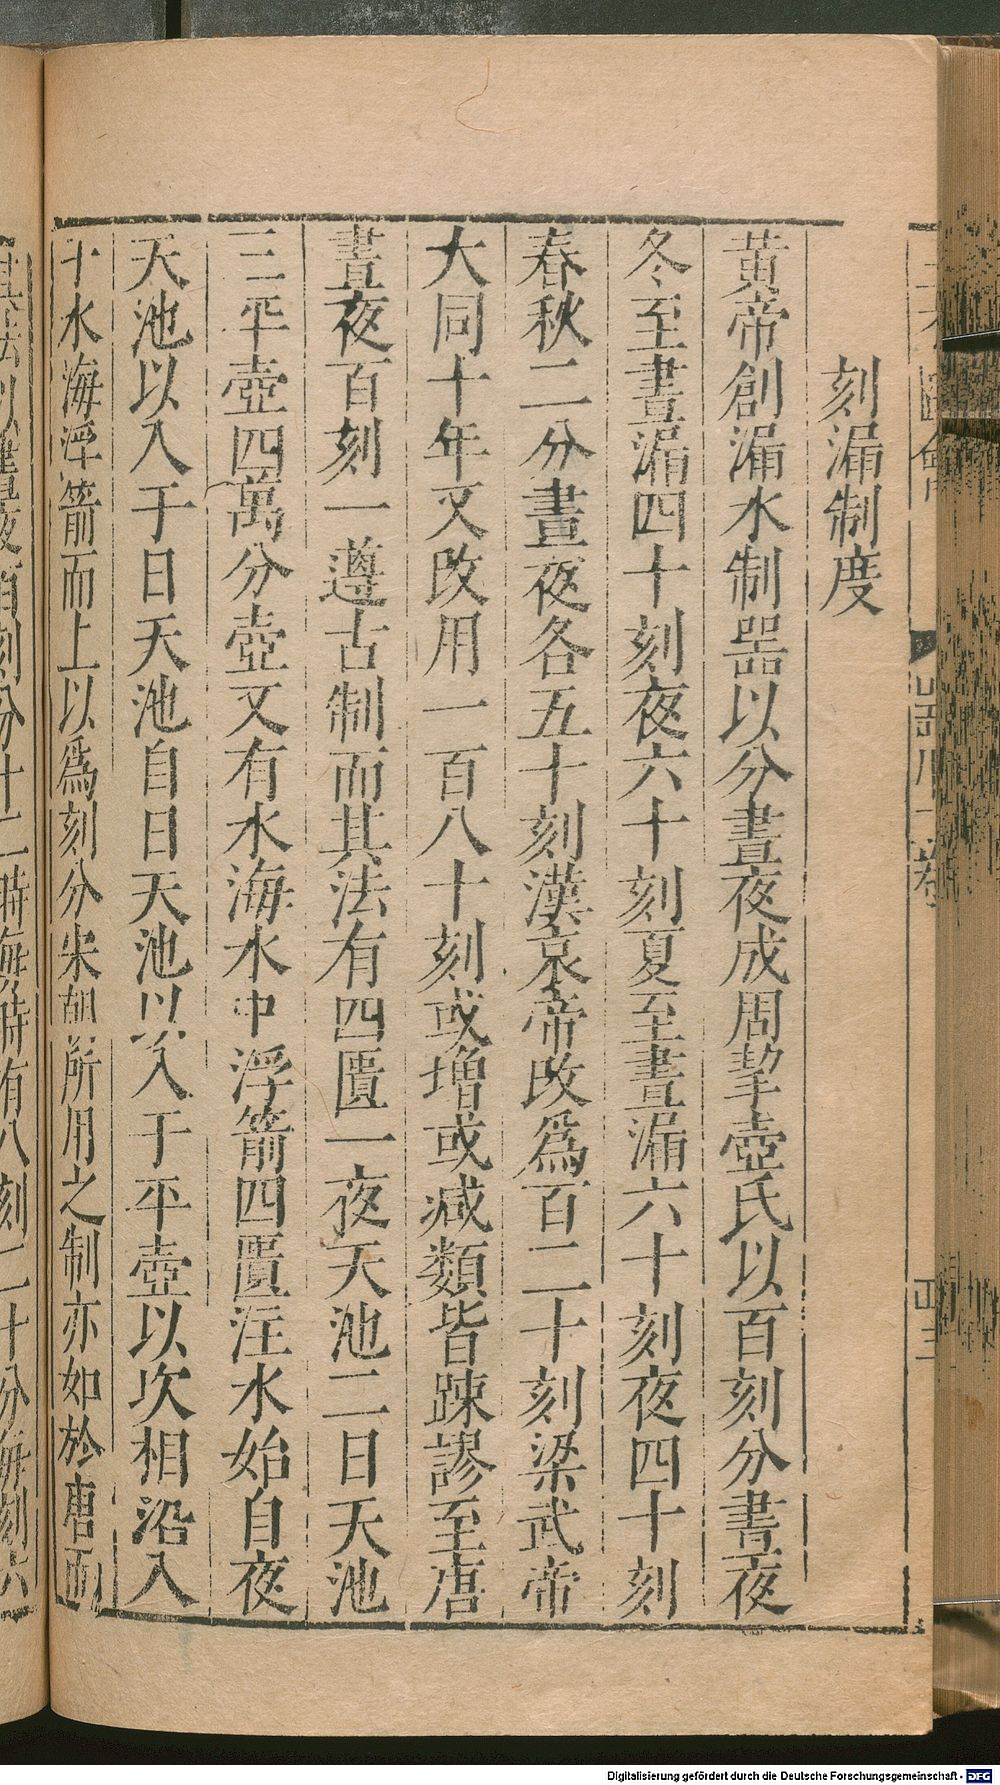 刻漏制度
黃帝創漏水制器以分晝夜成周挈壺氏以百刻分晝夜
冬至晝漏四十刻夜六十刻夏至晝漏六十刻夜四十刻
春秋二分晝夜各五十刻漢哀帝改為百二十刻梁武帝
大同十年又改用一百八十刻或增或减類皆踈謬至唐
晝夜百刻一遵古制而其法有四匱一夜天池二日天池
三平壺四萬分壺又有水海水中浮箭四匱注水始自夜
天池以入于日天池自日天池以入于平壺以次相沿入
于水海浮箭而上以為刻分宋朝所用之制亦如於唐而
其法以晝夜百刻分十二時每時有八刻二十分每刻六
Digitalisierung gefördert durch die Deutsche Forschungsgemeinschaft - DFG